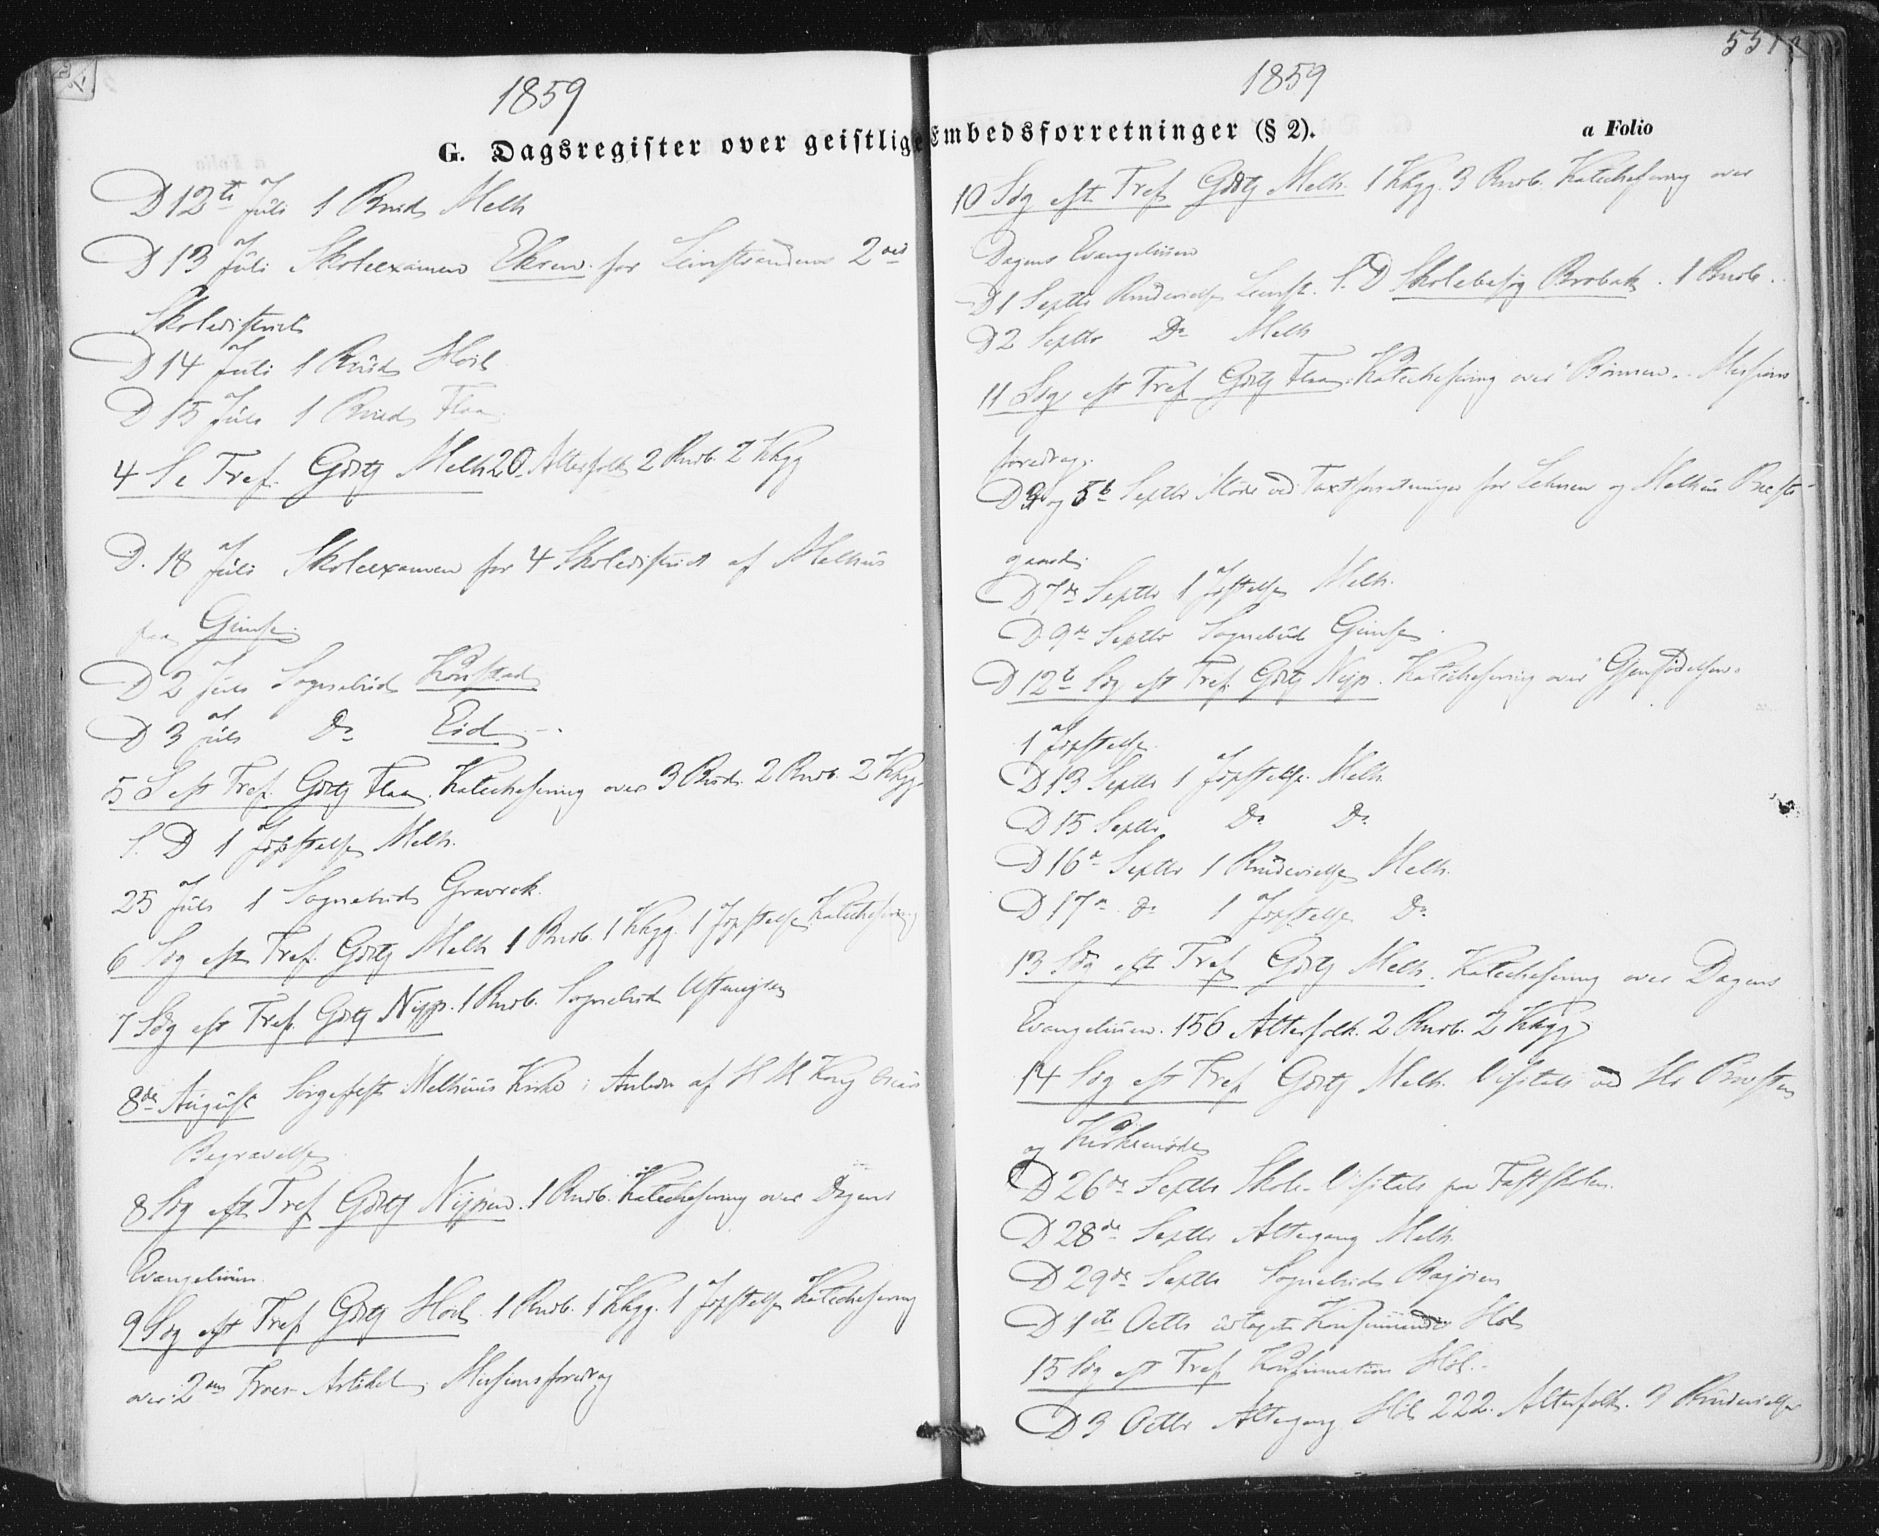 1859
G. Dagsregister over geistlige
D 12te Juli 1 Brud Melh
D 13 Juli Skoleexamen Ekren for Leinstrandens 2det
Skoledistrict
D 14 Juli 1 Brud Hovd
D 15 Juli 1 Brud Flaa.
4 S e Tref. Gdstj Melh 20 Alterfolk 2 Brvb. 2 Kkgg
D. 18 Juli Skoleexamen for 4 Skoledistrict af Melhus
paa Gimse.
D 2 Juli Sognebud
D 3 Juli Do Eid
5 S eft Tref. Gdstj Flaa. Katechisering over 3 Bud. 2 Brvb. 2 Kkgg
S. D 1 Jopstelse Melh.
25 Juli 1 Sognebud Gravrok.
6 Søg eft Tref. Gdstj Melh 1 Brvb. 1 Kkgg. 1 Jopstelse Katechisering
7 Søg eft Tref. Gdstj Nypp. 1 Brvb. Sognebud
8de August Sørgefest Melhuus Kirke i Anledn af H M Kong Oscars
Begravelse.
8 Søg eft Tref Gdstj Nypen. 1 Brvb. Katechisering over Dagens
Evangelium.
9 Søg eft Tref Gdstj Hovd. 1 Brvb. 1 Kkgg. 1 Jopstelse Katechisering
over 2den Troes Artikel. Missionsforedrag
551
1859
Embedsforretninger (§ 2).
a Folio
10 Søg eft Tref Gdstj Melh. 1 Kkgg. 3 Brvb. Katechisering over
Dagens Evangelium
D 1 Septbr Brudevielse Leinst. S. D Skolebesøg Brobak. 1 Brvb.
D 2 Septbr Do Melh
11 Søg eft Tref Gdstj Flaa. Katechisering over Bønnen. Missions
foredrag.
D og 5te Septbr Møde ved Taxtforretninger for Lehnen og Melhus Præste
gaard.
D 7de Septbr 1 Jopstelse Melh.
D 9de Septbr Sognebud Gimse.
D 12te Søg eft Tref. Gdstj Nypp. Katechisering over Gjenfødelsen.
1 Jopstelse.
D 13 Septbr 1 Jopstelse. Melh.
D 15 Septbr Do Do
D 16de Septbr 1 Brudevielse Melh.
D 17de do 1 Jopstelse Do
13 Søg eft Tref Gdstj Melh. Katechisering over Dagens
Evangelium. 156 Alterfolk. 2 Brvb. 2 Kkgg.
14 Søg eft Tref Gdstj Melh. Visitats ved Hr Provsten
og Kirkemøde
D 26de Septbr Skole-Visitats paa Fastskolen.
D 28de Septbr Altergang Melh.
D 29de Septbr Sognebud
D 1ste Octbr Confirmander Høl
15 Søg eft Tref Confirmation Høl.
D 3 Octbr Altergang Høl 222. Alterfolk. 3 Brudevielser